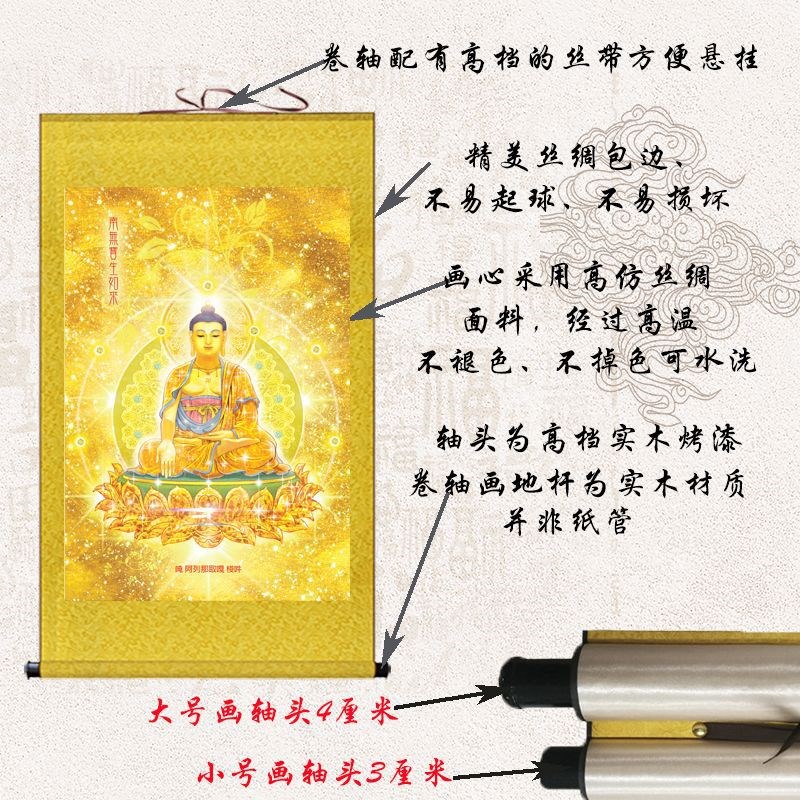 卷轴配有高档的丝带方便悬挂
精美丝绸包边、
不易起球、不易损坏
画心采用高仿丝绸
面料，经过高温
不褪色、不掉色可水洗
轴头为高档实木烤漆
卷轴画地杆为实木材质
并非纸管
南無寶生如來
嗡 阿列那取嘎 梭吽
大号画轴头4厘米
小号画轴头3厘米